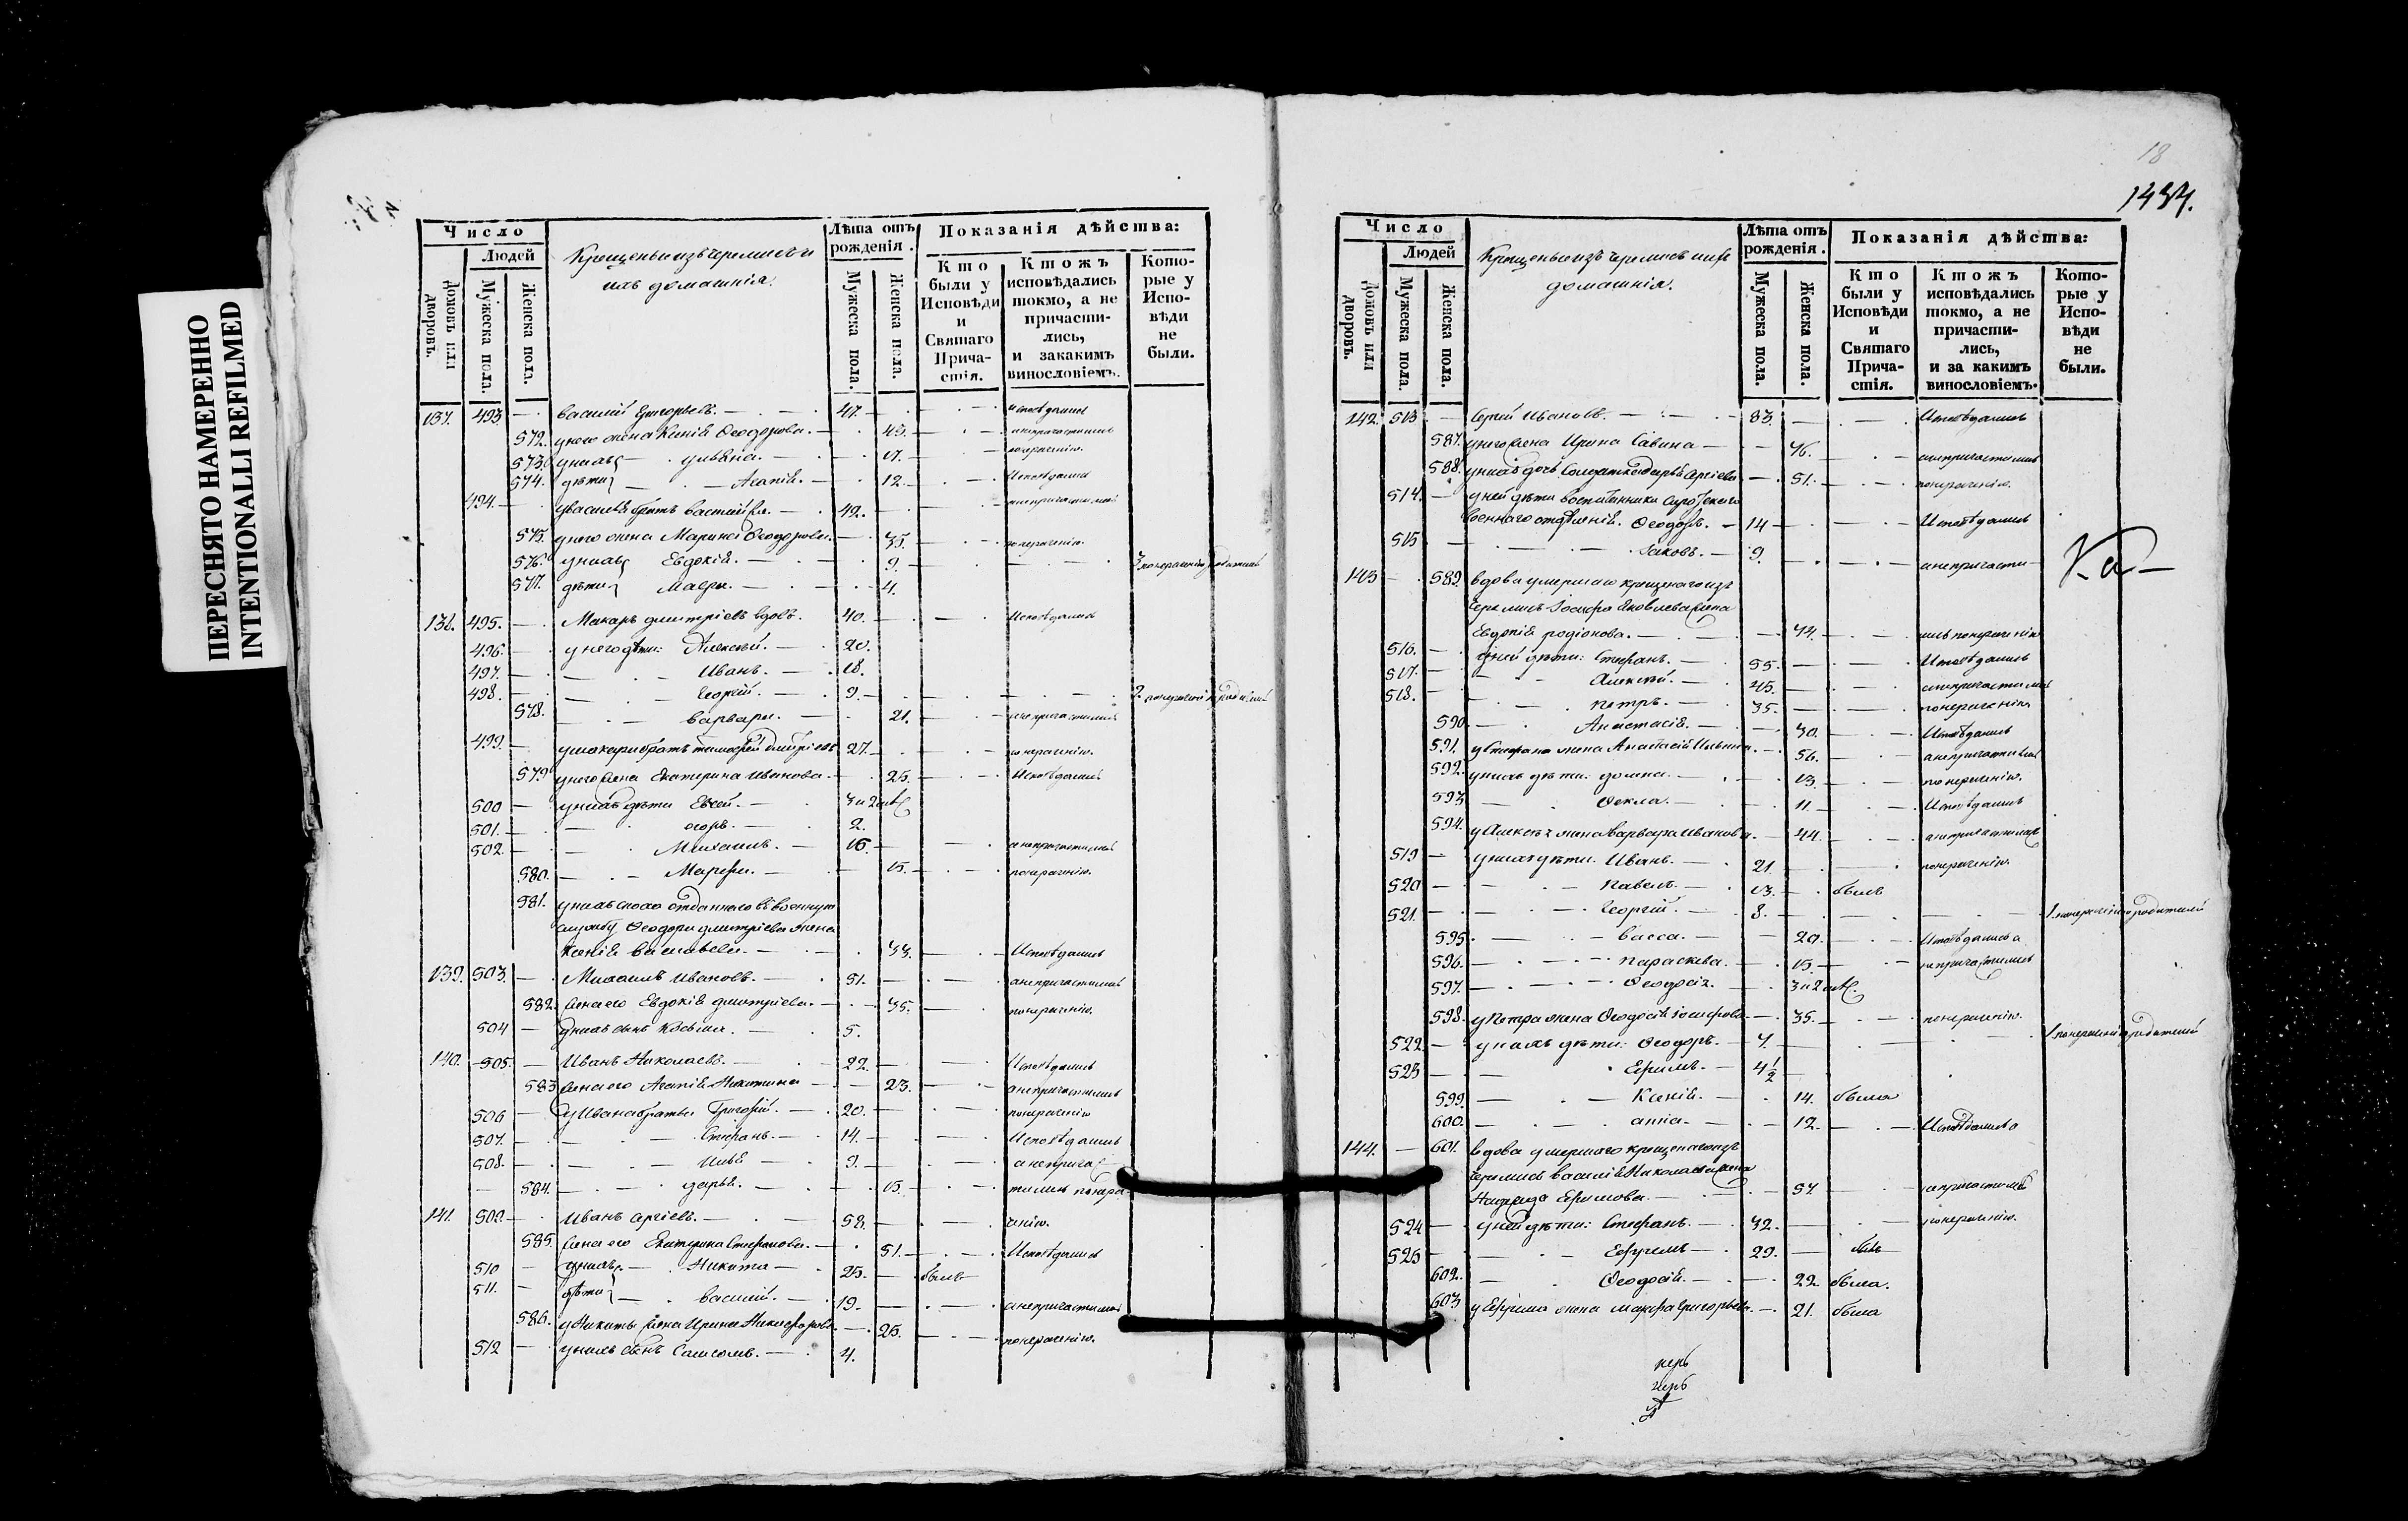 ПЕРЕСНЯТО НАМЕРЕННО
INTENTIONALLI REFILMED
Число
Людей
Домовъ или дворовъ.
Мужеска пола.
Женска пола.
Крещеные изъ черемисъ и
ихъ домашнія.
Лѣта отъ рожденія.
Мужеска пола.
Женска пола.
Показанія дѣйства:
Кто были у Исповѣди и Святаго Прича-стія.
Ктожъ исповѣдались токмо, а не причасти-лись, и закакимъ винословіемъ.
Кото-рые у Испо-вѣди не были.
137. 493. — Василій Григорьевъ. — 47. — Исповѣдались
572. у него жена Ксенія Ѳеодорова. — 43. — анепричастились
573. у нихъ — Ульяна. — 17. — понераченію.
574. дѣти — Агапія. — 12. — Исповѣдались
494. — 42. — анепричастились
575. у него жена Марина Ѳеодорова. — 35. — понераченію.
576. у нихъ Евдокія. — 9.
577. дѣти Мавра. — 4.
138. 495. — Макаръ Дмитріевъ вдовъ. 40. — Исповѣдались
496. — у него дѣти: Алексѣй. — 20.
497. — Иванъ. — 18.
498. — Георгій. — 9.
578. — Варвара. — 21. — анепричастились
499. — у Макара братъ Тимофей Дмитріевъ 27. — понераченію.
579. у него жена Екатерина Иванова. — 25. — Исповѣдались
500 — у нихъ дѣти Евсей.
501. — 2.
502. — Михаилъ. — 16. — анепричастились
580. — Марѳа. — 15. — понераченію.
581. у нихъ сноха отданнаго въ военную
службу Ѳеодора Дмитріева жена
Ксенія Васильева. — 33. — Исповѣдались
139. 503. — Михаилъ Ивановъ. — 51. — анепричастились
582. жена его Евдокія Дмитріева. — 35. — понераченію.
504 — у нихъ сынъ Косьма. — 5.
140. 505. — Иванъ Николаевъ. — 22. — Исповѣдались
583. жена его Агапія Никитина — 23. — анепричастились
506 — у Ивана братья Григорій. — 20. — понераченію
507. — Стефанъ. — 14. — Исповѣдались
508. — Илья — 9. — анеприча
584. — Дарья. — 15. — стились понера
141. 509. — Иванъ Сергіевъ. — 58. — ченію.
585. жена его Екатерина Стефанова. — 51. — Исповѣдались
510 — у нихъ — Никита — 25. — былъ
511. — дѣти — Василій. — 19. — анепричастились
586. у Никиты жена Ирина Никифорова. — 25. — понераченію.
512 — у нихъ сынъ Самсонъ. — 4.
18
1434.
Число
Людей
Домовъ или дворовъ.
Мужеска пола.
Женска пола.
Крещеные изъ черемисъ и ихъ
домашнія.
Лѣта отъ рожденія.
Мужеска пола.
Женска пола.
Показанія дѣйства:
Кто были у Исповѣди и Святаго Прича-стія.
Ктожъ исповѣдались токмо, а не причасти-лись, и за какимъ винословіемъ.
Кото-рые у Испо-вѣди не были.
142. 513 — Сергій Ивановъ. — 83. — Исповѣдались
587. у него жена Ирина Савина — 76. — анепричастились
588. у нихъ дочь Солдатка Дарья Сергіева — 51. — понераченію.
514. — у ней дѣти воспитанники Сиротскаго
военнаго отдѣленія. Ѳеодоръ. — 14 — Исповѣдались
515 — Іаковъ. — 9. — анепричасти
143 — 589. вдова умершаго крещенаго изъ
черемисъ Іосифа Яковлева жена
Евдокія Родіонова. — 74. — лись понераченію
516. — у ней дѣти: Стефанъ. — 55. — Исповѣдались
517. — Алексѣй. — 45. — анепричастились
518. — Петръ. — 35. — понераченію.
590. — Анастасія. — 30. — Исповѣдались
591. у Стефана жена Анастасія Ильина. — 56. — анепричастились
592. у нихъ дѣти: Домна. — 13. — понераченію.
593 — Ѳекла. — 11. — Исповѣдались
594. у Алексѣя жена Варвара Иванова. — 44. — анепричастились
519 — у нихъ дѣти: Иванъ. — 21. — понераченію.
520 — Павелъ. — 13. — былъ
521. — Георгій. — 8. — 1. понераченію родителей
595. — Васса. — 20. — Исповѣдались а
596. — Параскева. — 15. — непричастились
597. — Ѳеодосія.
598. у Петра жена Ѳеодосія Іосифова — 35. — понераченію.
522. — у нихъ дѣти: Ѳеодоръ. — 7. — 1. понераченію родителей
523 — Ефимъ. — 4 1/2
599. — Ксенія. — 14. была
600. — Анна. — 12. — Исповѣдались
144. — 601. вдова умершаго крещенаго изъ
черемисъ Василія Николаева жена
Надежда Ефимова. — 57. — непричастились
524 — у ней дѣти: Стефанъ. — 32. — понераченію.
525 — Ефремъ — 29. — былъ
602. — Ѳеодосія. — 22. была.
603 у Ефрема жена Марфа Григорьева. — 21. была